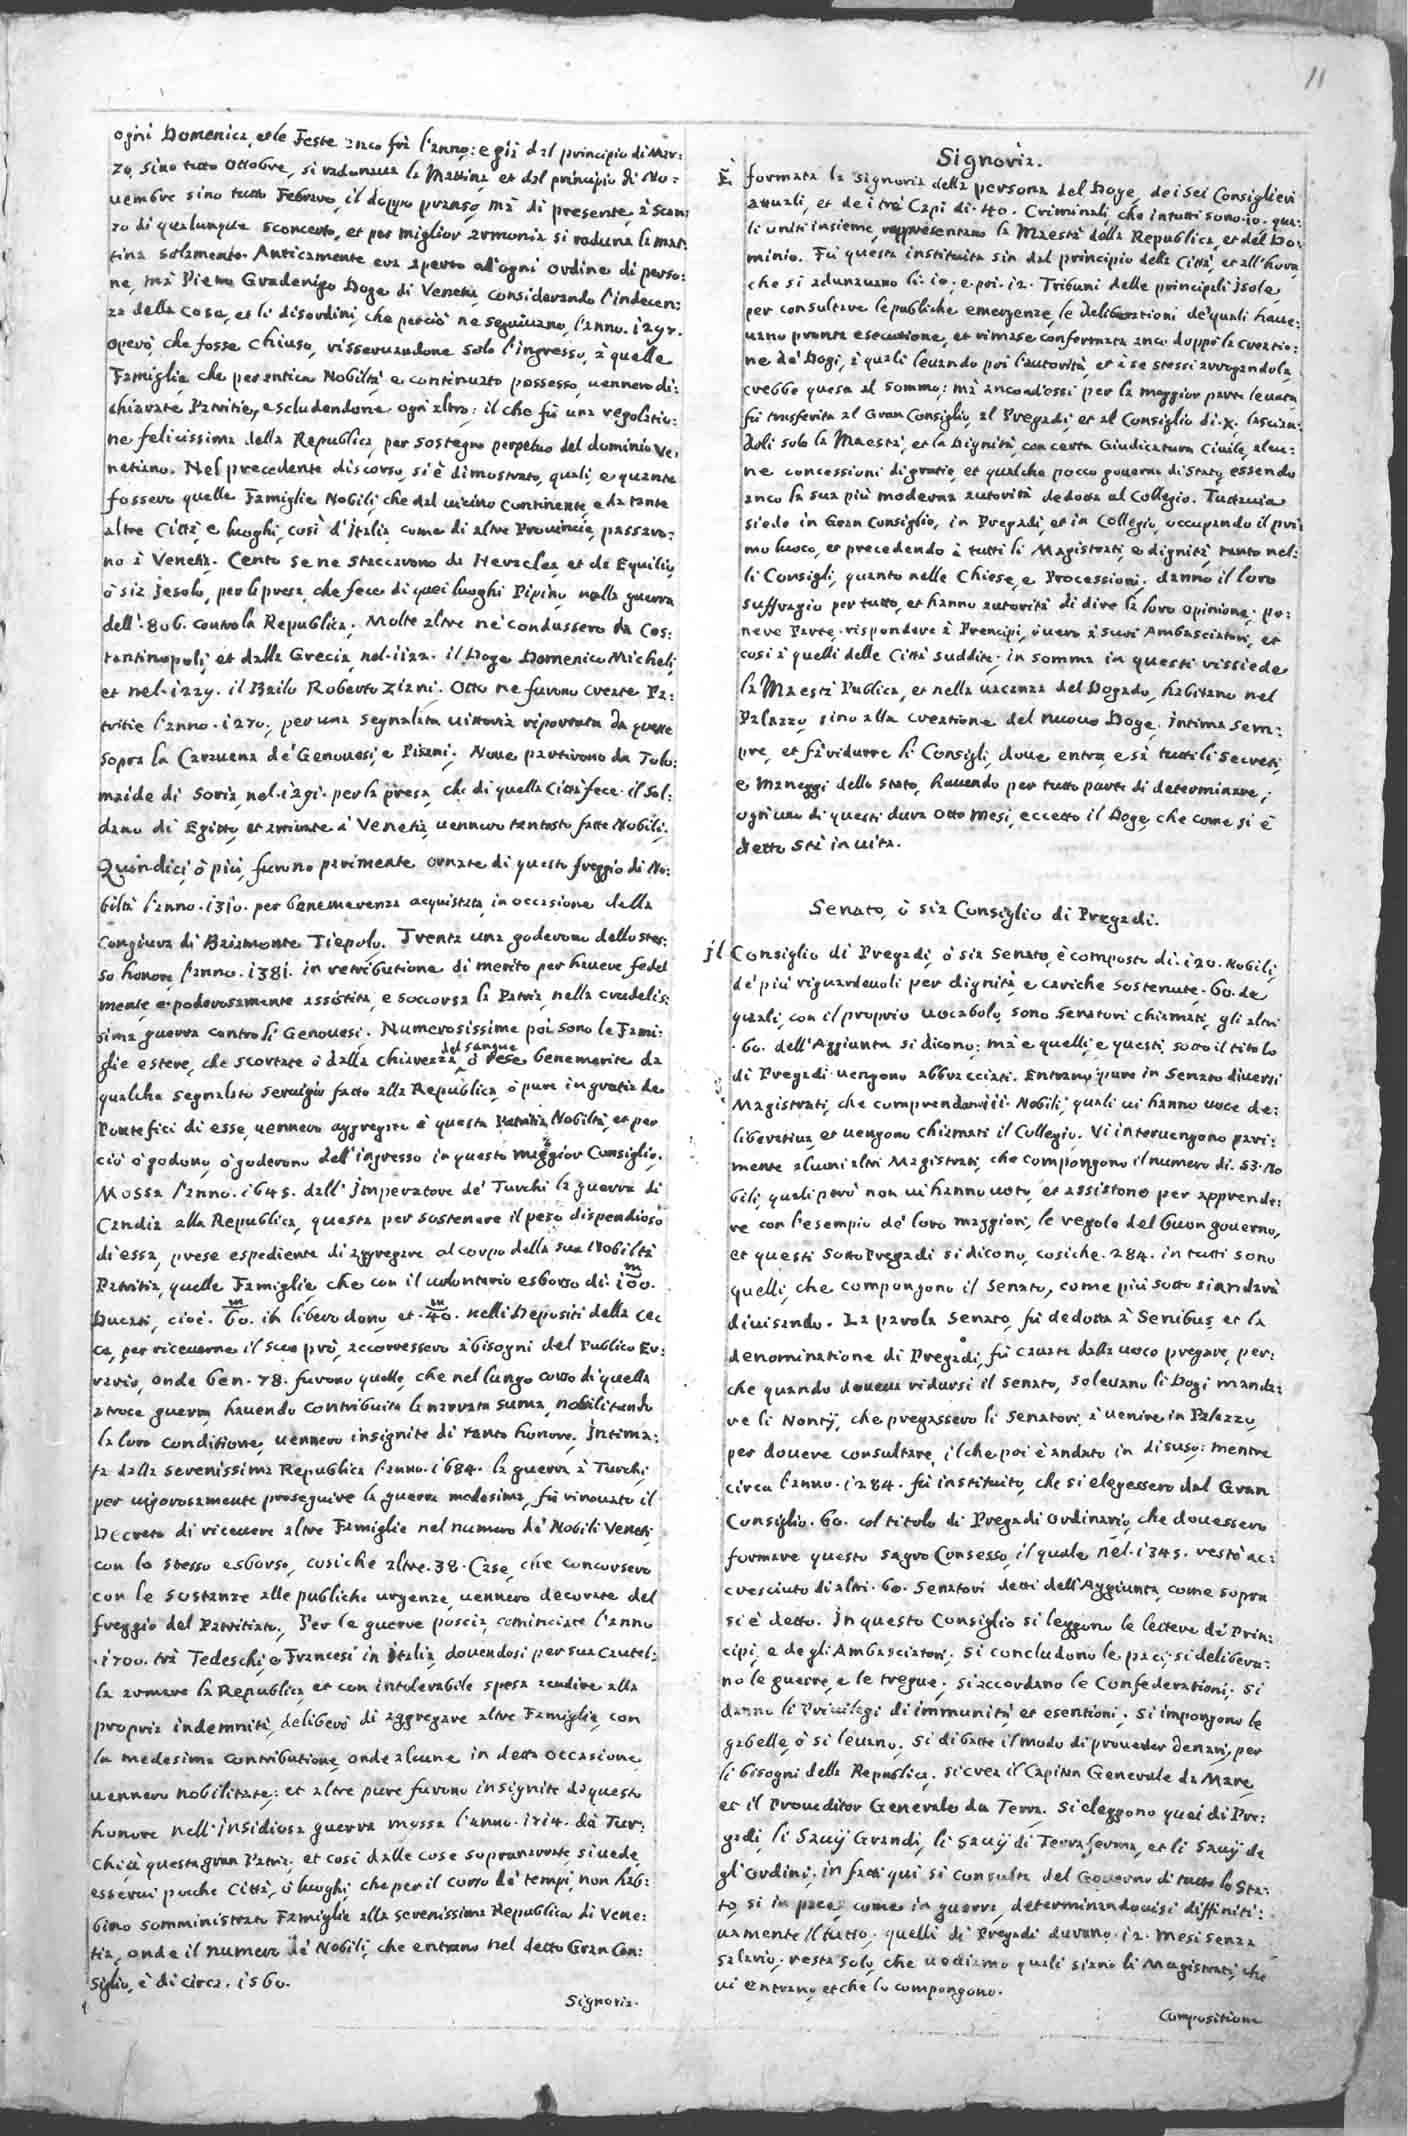 11
ogni Domenica, et le Feste anco frà l'anno: e già dal principio di Mar:
zo, sino tutto Ottobre, si radunaua la Mattina, et dal principio di No:
uembre sino tutto Febraro, il doppo pranso, mà di presente, à scan:
zo di qualunque sconcerto, et per miglior armonia si raduna la mat:
tina solamente. Anticamente era aperto ad'ogni ordine di perso:
ne, mà Pietro Gradenigo Doge di Venetia considerando l'indecen:
za della cosa, et li disordini, che perciò ne seguiuano, l'anno .1297.
operò, che fosse chiuso, risseruandone solo l'ingresso, à quelle
Famiglie, che per antica Nobiltà, e continuato possesso, uennero di:
chiarate Patritie, escludendone ogni altro: il che fù una regolatio:
ne felicissima della Republica, per sostegno perpetuo del dominio Ve:
netiano. Nel precedente discorso, si è dimostrato, quali, e quante
fossero quelle Famiglie Nobili, che dal uicino Continente, e da tante
altre Città, e luoghi, così d'Italia, come di altre Prouincie, passaro:
no à Venetia. Cento se ne staccarono da Heraclea, et da Equilio,
ò sia Jesolo, per la presa, che fece di quei luoghi Pipino, nella guerra
dell'.806. contro la Republica. Molte altre ne condussero da Cos:
tantinopoli, et dalla Grecia, nel .1122. il Doge Domenico Micheli,
et nel .1229. il Bailo Roberto Ziani. Otto ne furono create Pa:
tritie l'anno .1270. per una segnalata uittoria riportata da queste
sopra la Carauena de' Genouesi, e Pisani. Noue partirono da Tolo:
maide di Soria, nel .1291. per la presa, che di quella Città fece il Sol:
dano di Egitto, et arriuate à Venetia, uennero tantosto fatte Nobili.
Quindici, ò più, furono parimente ornate di questo freggio di No:
biltà l'anno .1310. per benemerenza acquistata, in occasione della
Congiura di Baiamonte Tiepolo. Trenta una goderono dello stes:
so honore, l'anno .1381. in retributione di merito per hauere fedel
mente, e poderosamente assistita, e soccorsa la Patria, nella crudelis:
sima guerra contro li Genouesi. Numerosissime poi sono le Fami:
glie estere, che scortate ò dalla chiarezza del sangue, ò rese benemerite da
qualche segnalato seruigio fatto alla Republica, ò pure in gratia de
Pontefici di esse, uennero aggregate à questa Patritia Nobiltà, et per
ciò ò godono, ò goderono dell'ingresso in questo maggior Consiglio.
Mossa l'anno .1645. dall'Imperatore de' Turchi la guerra di
Candia alla Republica, questa per sostenere il peso dispendioso
di essa, prese espediente di aggregare al corpo della sua Nobiltà
Patritia, quelle Famiglie, che con il uolontario esborso di .100.m
Ducati, cioè .60.m in libero dono, et .40.m nelli Depositi della Cec
ca, per riceuerne il suo prò, accorressero à bisogni del Publico Er:
rario, onde ben .78. furono quelle, che nel lungo corso di quella
atroce guerra, hauendo contribuita la narrata suma, nobilitando
la loro conditione, uennero insignite di tanto honore. Intima:
ta dalla Serenissima Republica l'anno .1684. la guerra à Turchi,
per uigorosamente proseguire la guerra medesima, fù rinouato il
Decreto di riceuere altre Famiglie nel numero de' Nobili Veneti,
con lo stesso esborso, cosiche altre .38. Case, che concorsero
con le sostanze alle publiche urgenze, uennero decorate del
freggio del Patritiato. Per le guerre poscia, cominciate l'anno
.1700. trà Tedeschi, e Francesi in Italia, douendosi per sua Cautel:
la armare la Republica, et con intolerabile spesa accudire alla
propria indemnità, deliberò di aggregare altre Famiglie, con
la medesima contributione, onde alcune in detta occasione
uennero nobilitate: et altre pure furono insignite di questo
honore nell'insidiosa guerra mossa l'anno .1714. dà Tur:
chi à questa gran Patria, et così dalle cose sopranarrate, si uede,
esserui poche Città, ò luoghi, che per il corso de' tempi, non hab:
bino somministrato Famiglie alla Serenissima Republica di Vene:
tia, onde il numero de' Nobili, che entrano nel detto Gran Con:
siglio, è di circa .1560.
Signoria.
Signoria.
È formata la Signoria della persona del Doge, dei sei Consiglieri
attuali, et dei trè Capi di .40. Criminali, che in tutti sono .10. qua:
li uniti insieme, rappresentano la Maestà della Republica, et del Do:
minio. Fù questa instituita sin dal principio della Città, et all'hora,
che si adunauano li .10. e poi .12. Tribuni delle principali Isole,
per consultare le publiche emergenze, le deliberationi de' quali haue:
uano pronta esecutione, et rimase confermata anco doppo la creatio:
ne de' Dogi, à quali leuando poi l'autorità, et à se stessi arrogandola,
crebbe questa al sommo: mà anco ad essi per la maggior parte leuata,
fù trasferita al Gran Consiglio, al Pregadi, et al Consiglio di .X. lascian:
doli solo la Maestà, et la Dignità, con certa Giudicatura Ciuile, alcu:
ne concessioni di gratie, et qualche pocco gouerno di stato, essendo
anco la sua più moderna autorità dedotta al Collegio. Tuttauia
siede in Gran Consiglio, in Pregadi, et in Collegio, occupando il pri
mo luoco, et precedendo à tutti li Magistrati, e dignità, tanto nel:
li Consigli, quanto nelle Chiese, e Processioni, danno il loro
suffragio per tutto, et hanno autorità di dire la loro opinione, po:
nere Parte, rispondere à Prencipi, ouero à suoi Ambasciatori, et
così à quelli delle Città suddite. in somma in questi rissiede
la Maestà Publica, et nella uacanza del Dogado, habitano nel
Palazzo, sino alla creatione del nuouo Doge. Intima sem:
pre, et fà ridurre li Consigli, doue entra, e sà tutti li secreti,
e Maneggi dello stato, hauendo per tutto parte di determinare,
ogni uno di questi dura otto mesi, eccetto il Doge, che come si è
detto stà in uita.
Senato, ò sia Consiglio di Pregadi.
Il Consiglio di Pregadi, ò sia Senato, è composto di .120. Nobili,
de' più riguardeuoli per dignità, e cariche sostenute. 60. de
quali, con il proprio uocabolo, sono Senatori chiamati, gli altri
.60. dell'Aggiunta si dicono; mà e quelli, e questi, sotto il titolo
di Pregadi uengono abbracciati. Entrano pure in Senato diuersi
Magistrati, che comprendono .111. Nobili, quali ui hanno uoce de:
liberatiua, et uengono chiamati il Collegio. Vi interuengono pari:
mente alcuni altri Magistrati, che compongono il numero di .53. No
bili, quali però non ui hanno uoto, et assistono per apprende:
re con l'esempio de' loro maggiori, le regole del buon gouerno,
et questi Sotto Pregadi si dicono, cosiche .284. in tutti sono
quelli, che compongono il Senato, come più sotto si andarà
diuisando. La parola Senato, fù dedotta à Senibus, et la
denominatione di Pregadi, fù cauata dalla uoce pregare, per:
che quando doueua ridursi il Senato, soleuano li Dogi manda:
re li Nontij, che pregassero li Senatori, à uenire in Palazzo,
per douere consultare, il che poi è andato in disuso: mentre
circa l'anno .1284. fù instituito, che si elegessero dal Gran
Consiglio .60. col titolo di Pregadi Ordinario, che douessero
formare questo sagro Consesso, il quale nel .1345. restò ac:
cresciuto di altri .60. Senatori detti dell'Aggiunta, come sopra
si è detto. In questo Consiglio si leggono le lettere de' Prin:
cipi, e de gli Ambasciatori, si concludono le paci, si delibera:
no le guerre, e le tregue, si accordano le Confederationi, si
danno li Priuilegi di immunità, et esentioni, si impongono le
gabelle, ò si leuano, si dibatte il modo di proueder denari, per
li bisogni della Republica, si crea il Capitan Generale da Mare,
et il Proueditor Generale da Terra. Si eleggono quei di Pre:
gadi, li Sauij Grandi, li Sauij di Terra ferma, et li Sauij de
gl'Ordini, in fatti qui si consulta del Gouerno di tutto lo Sta:
to, si in pace, come in guerra, determinandouisi diffiniti:
uamente il tutto. quelli di Pregadi durano .12. mesi senza
salario. resta solo, che uediamo quali siano li Magistrati, che
ui entrano, et che lo compongono.
Compositione